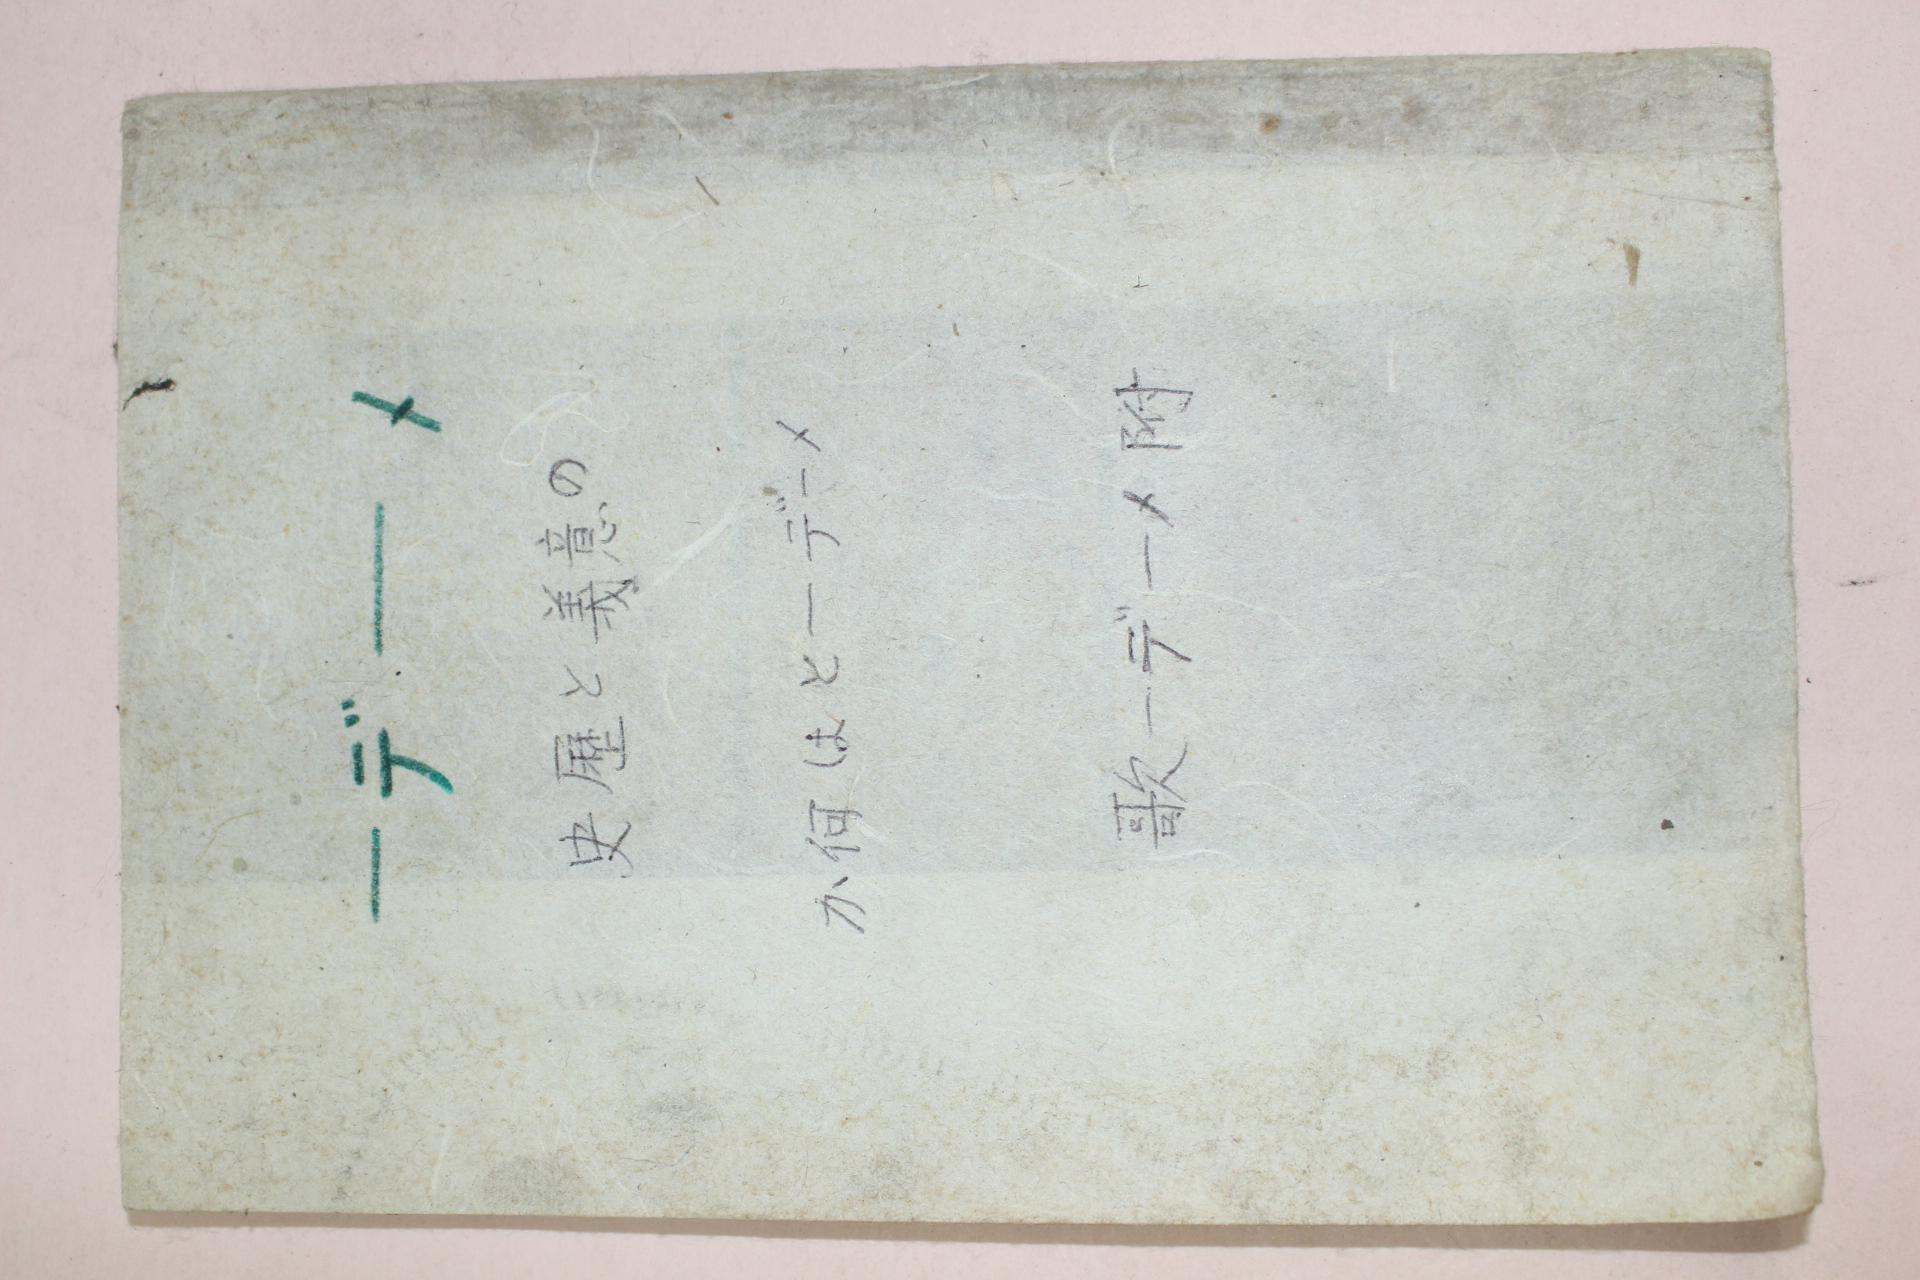 メーデー
の意義と歴史
メーデーとは何か
附メーデー歌